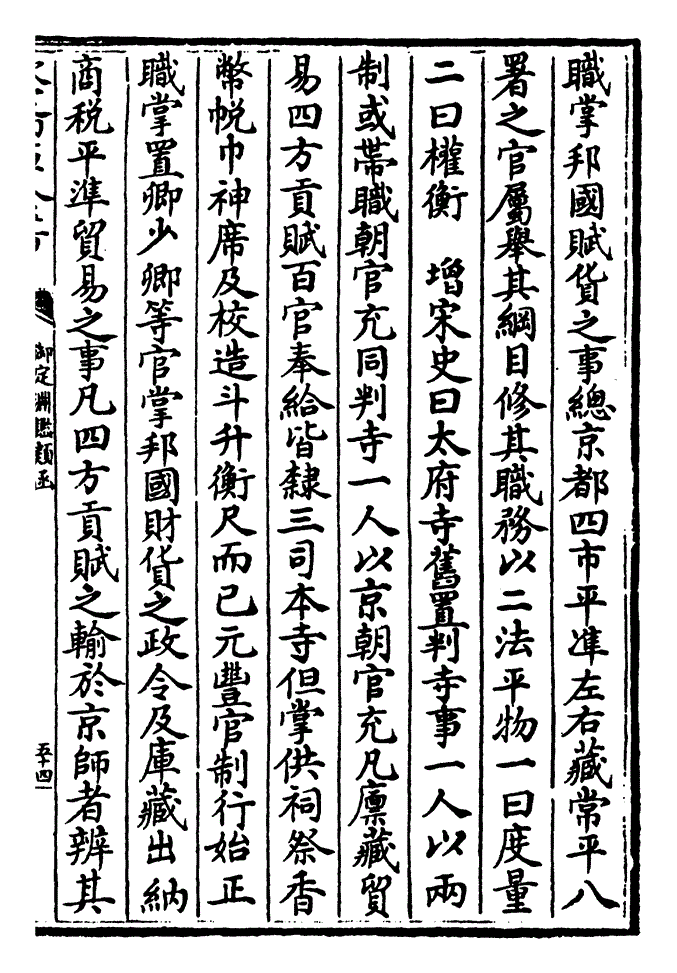 職掌邦國賦貨之事總京都四市平準左右藏常平八
署之官屬舉其綱目修其職務以二法平物一曰度量
二曰權衡　增宋史曰太府寺舊置判寺事一人以兩
制或帶職朝官充同判寺一人以京朝官充凡廪藏貿
易四方貢賦百官奉給皆隸三司本寺但掌供祠祭香
幣帨巾神席及校造斗升衡尺而已元豐官制行始正
職掌置卿少卿等官掌邦國財貨之政令及庫藏出納
商税平準貿易之事凡四方貢賦之輸於京師者辨其
御定淵鑑類函
五十四